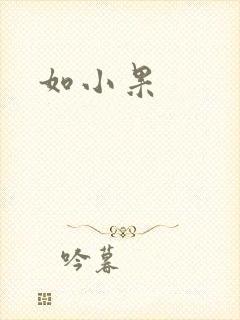 如小果
吟暮